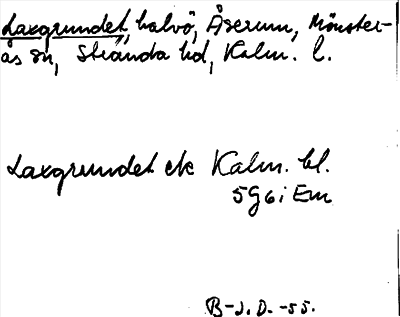 Laxgrundet, halvö, Åserum, Mönster-
ås sn, Stranda hd, Kalm. l.
Laxgrundet ek Kalm. bl.
5g6i Em
B-J.D. -55.